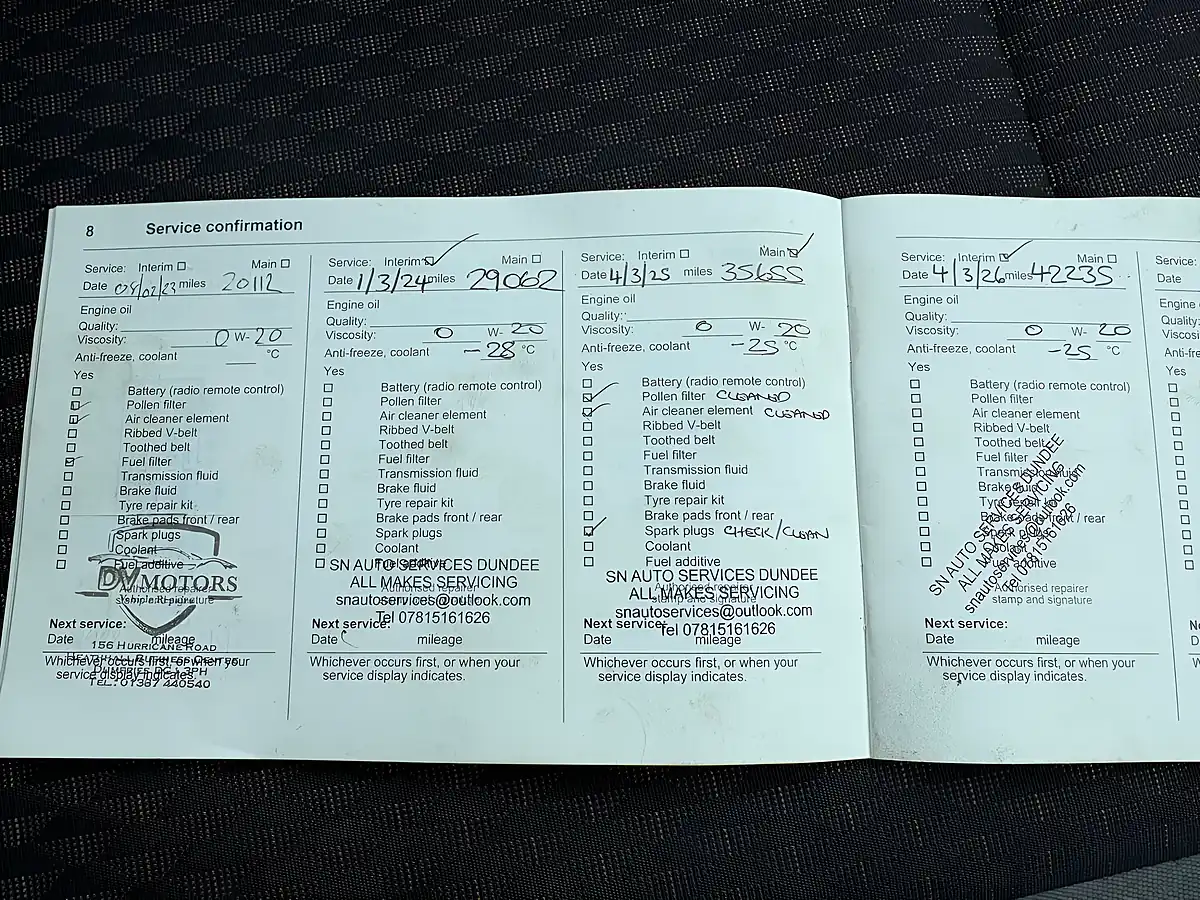 8 Service confirmation
Service: Interim Main
Date 08/02/23 miles 20112
Engine oil
Quality:
Viscosity: 0 W- 20
Anti-freeze, coolant °C
Yes
Battery (radio remote control)
Pollen filter
Air cleaner element
Ribbed V-belt
Toothed belt
Fuel filter
Transmission fluid
Brake fluid
Tyre repair kit
Brake pads front / rear
Spark plugs
Coolant
Fuel additive
DV MOTORS
Authorised repairer
stamp and signature
Next service:
Date mileage
156 HURRICANE ROAD
HEATHHALL BUSINESS CENTER
DUMFRIES DG1 3PH
TEL: 01387 440540
Whichever occurs first, or when your
service display indicates.
Service: Interim Main
Date 1/3/24 miles 29062
Engine oil
Quality:
Viscosity: 0 W- 20
Anti-freeze, coolant -28 °C
Yes
Battery (radio remote control)
Pollen filter
Air cleaner element
Ribbed V-belt
Toothed belt
Fuel filter
Transmission fluid
Brake fluid
Tyre repair kit
Brake pads front / rear
Spark plugs
Coolant
Fuel additive
SN AUTO SERVICES DUNDEE
ALL MAKES SERVICING
snautoservices@outlook.com
Tel 07815161626
Next service:
Date mileage
Whichever occurs first, or when your
service display indicates.
Service: Interim Main
Date 4/3/25 miles 35655
Engine oil
Quality:
Viscosity: 0 W- 20
Anti-freeze, coolant -25 °C
Yes
Battery (radio remote control)
Pollen filter CLEANED
Air cleaner element CLEANED
Ribbed V-belt
Toothed belt
Fuel filter
Transmission fluid
Brake fluid
Tyre repair kit
Brake pads front / rear
Spark plugs CHECK/CLEAN
Coolant
Fuel additive
SN AUTO SERVICES DUNDEE
Authorised repairer
ALL MAKES SERVICING
stamp and signature
snautoservices@outlook.com
Tel 07815161626
Next service:
Date mileage
Whichever occurs first, or when your
service display indicates.
Service: Interim Main
Date 4/3/26 miles 42235
Engine oil
Quality:
Viscosity: 0 W- 20
Anti-freeze, coolant -25 °C
Yes
Battery (radio remote control)
Pollen filter
Air cleaner element
Ribbed V-belt
Toothed belt
Fuel filter
Transmission fluid
Brake fluid
Tyre repair kit
Brake pads front / rear
additive
SN AUTO SERVICES DUNDEE
ALL MAKES SERVICING
snautoservices@outlook.com
Tel 07815161626
Authorised repairer
stamp and signature
Next service:
Date mileage
Whichever occurs first, or when your
service display indicates.
Service:
Date
Engine
Quality:
Viscosi
Anti-fre
Yes